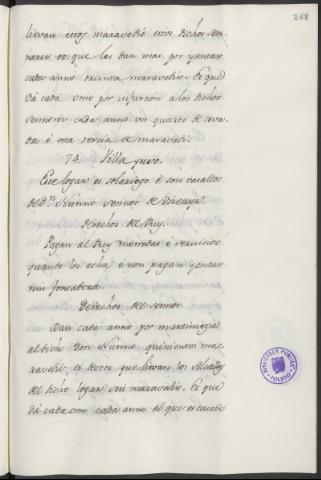 268
llevan estos maravedis estos dichos Sen-
nores es que les dan mas por yantar
cada anno treinta maravedis. Et quel
dà cada ome por infurcion a los dichos
sennores cada anno un quarto de ceva-
da è una tercia de maravedi.
74. Villa yuro.
Este logar es solariego è son vasallos
de Dn. Nunno sennor de Viscaya.
Derechos del Rey.
Pagan al Rey monedas è servicios
quando los echa è non pagan yantar
nin fonsadera.
Derechos del sennor.
Dan cada anno por martiniega
al dicho Don Nunno quinientos ma-
ravedis, et destos que llevan los Alcalles
del dicho logar seis maravedis. Et que
dà cada ome cada anno el que es casado
BIBLIOTECA PUBLICA
TOLEDO